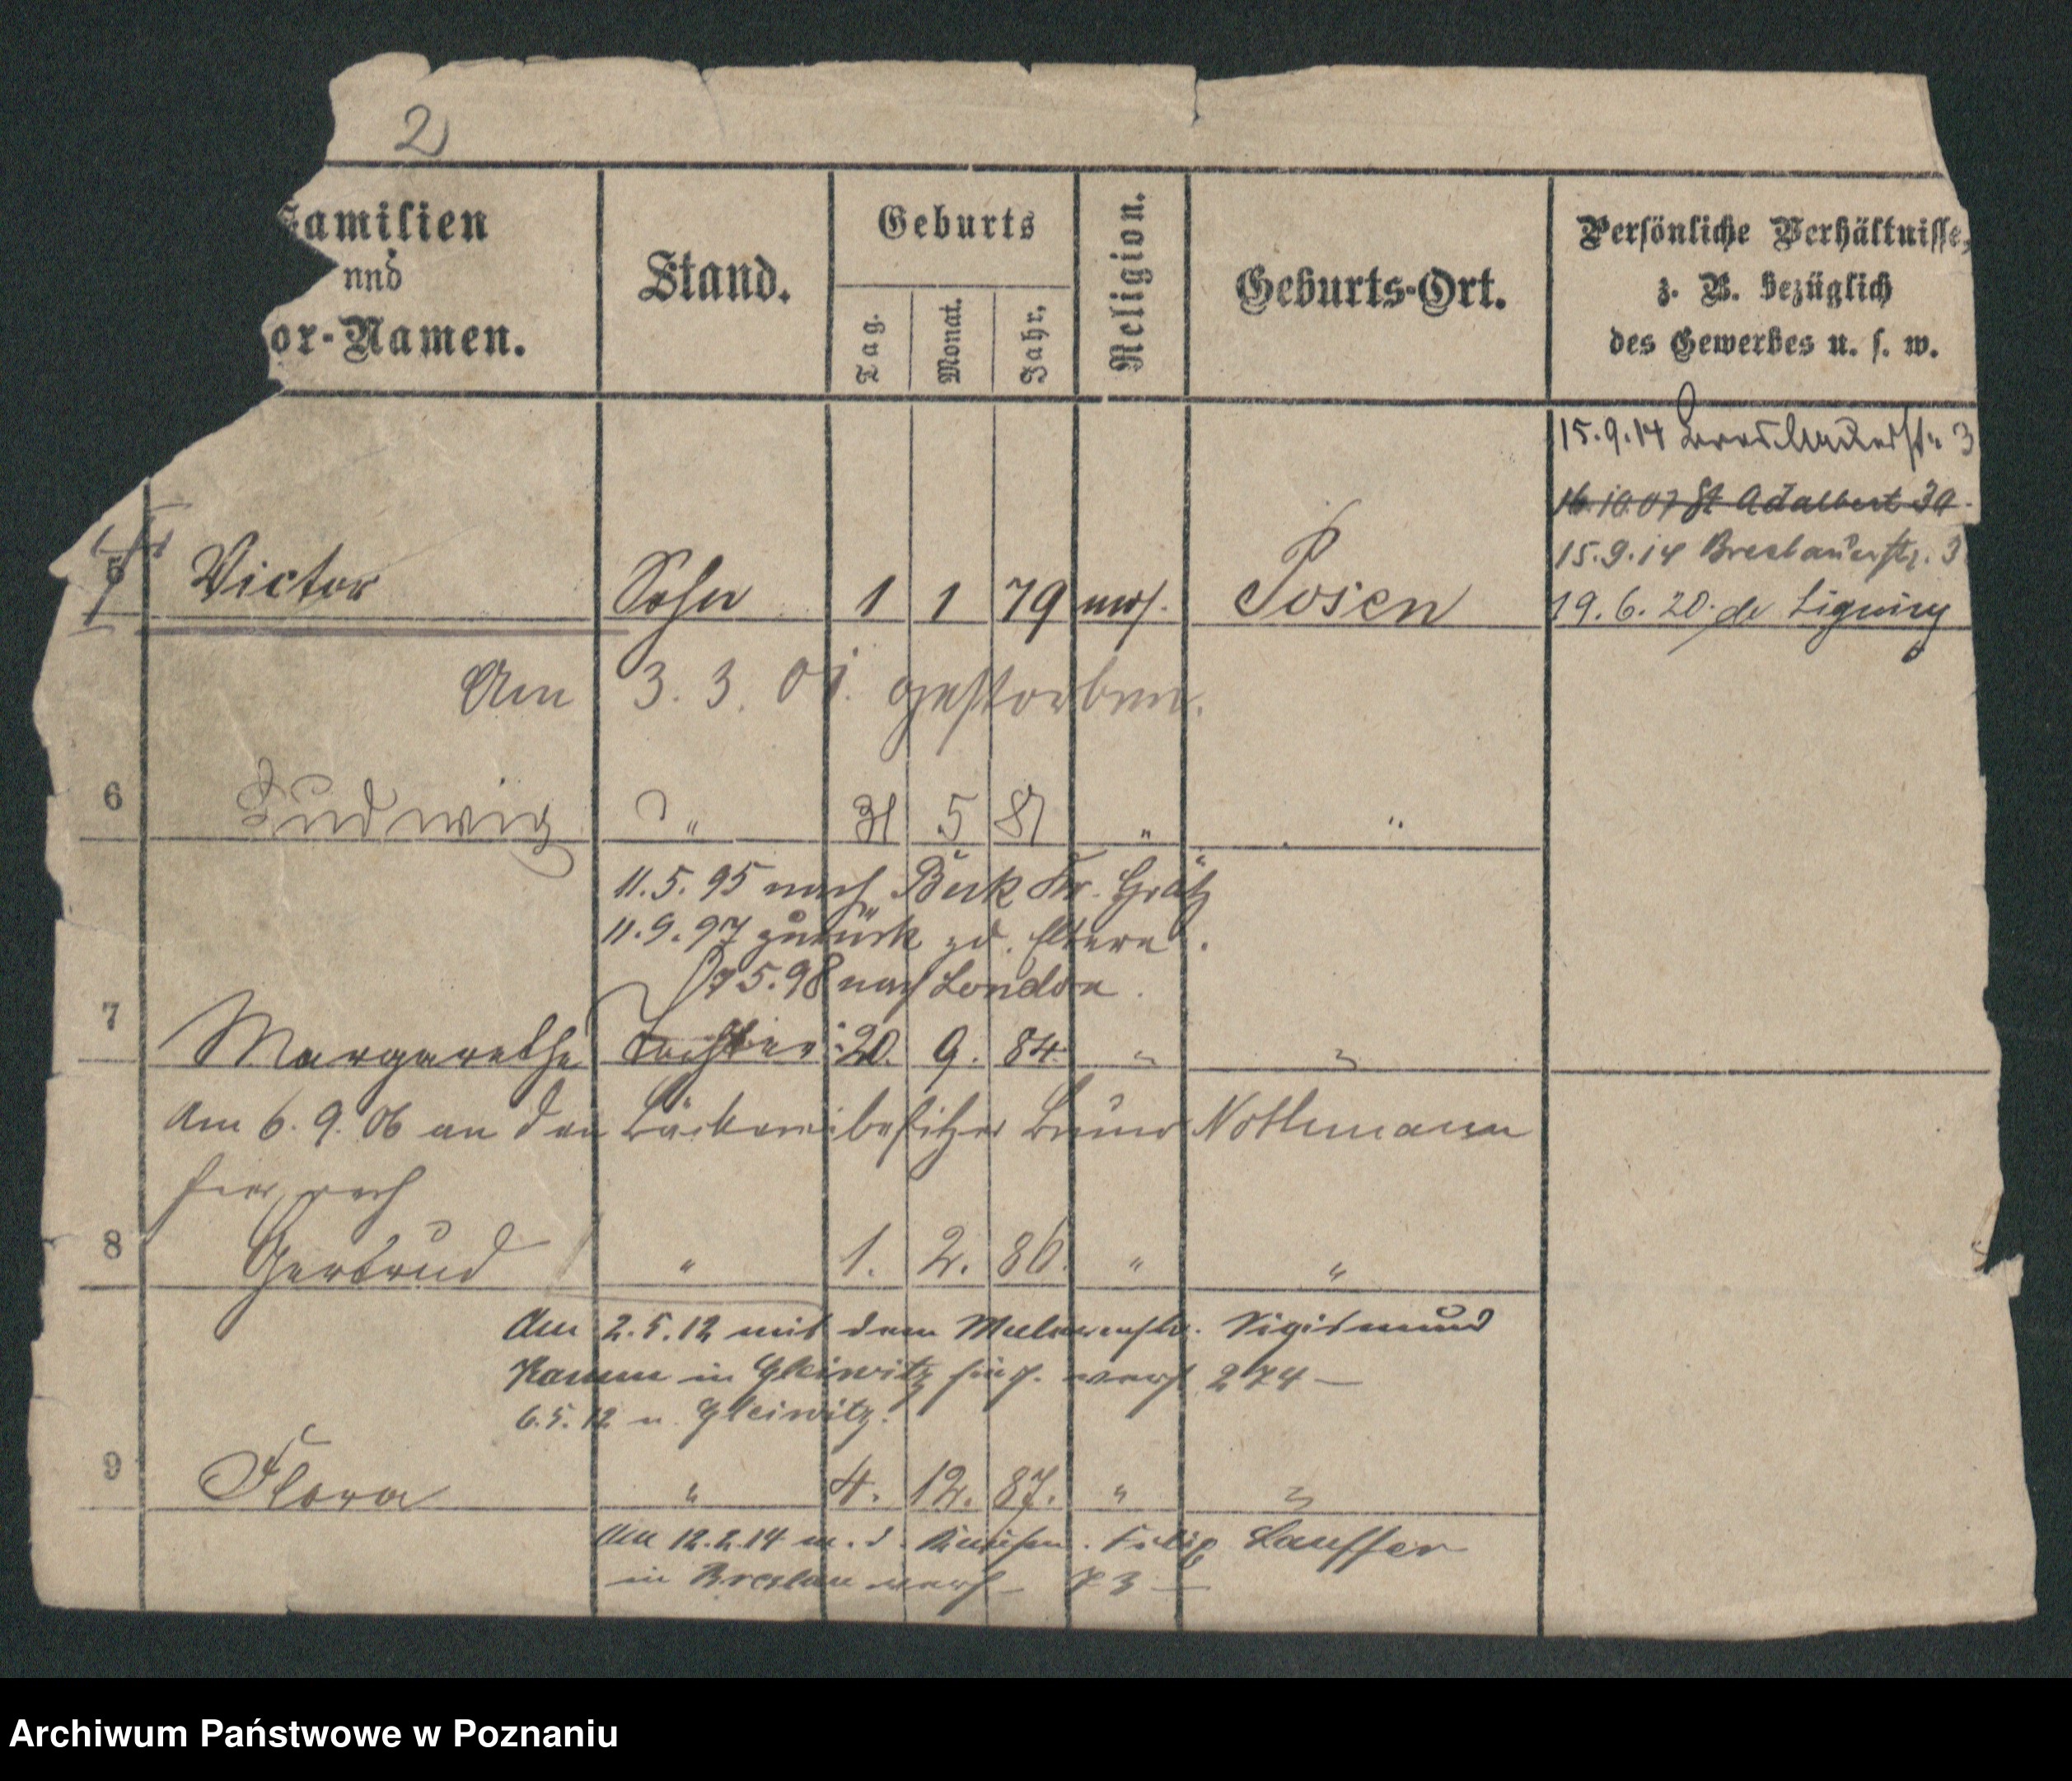 2
Familien
und
Vor-Namen.
Stand.
Geburts
Tag.
Monat.
Jahr.
Religion.
Geburts-Ort.
Persönliche Verhältnisse,
z. B. bezüglich
des Gewerbes u. s. w.
15.9.14 Breslauerstr. 3
16.10.07 St Adalbert 30
15.9.14 Breslauerstr. 3
5 Victor Sohn 1 1 79 mos. Posen 19.6.20.
Am 3. 3. 01. gestorben.
6 Ludwig " 31 5 81 " "
11.5.95 nach Buk Kr. Grätz
11.9.97 zurück zd. Eltern.
5.98 nach London.
7 Margarethe Tochter 20. 9. 84. " "
Am 6. 9. 06 an den Bäckereibesitzer Bruno Nothmann
hier verh
8 Gertrud " 1. 2. 86. " "
Am 2.5.12 mit dem Sigismund
Kamm in Gleiwitz hies. verh 274 —
6.5.12 n. Gleiwitz.
9 Flora " 4. 12. 87. " "
Am 12.2.14 m. d. Kaufm. Lauffer
in Breslau verh — 73 —
Archiwum Państwowe w Poznaniu